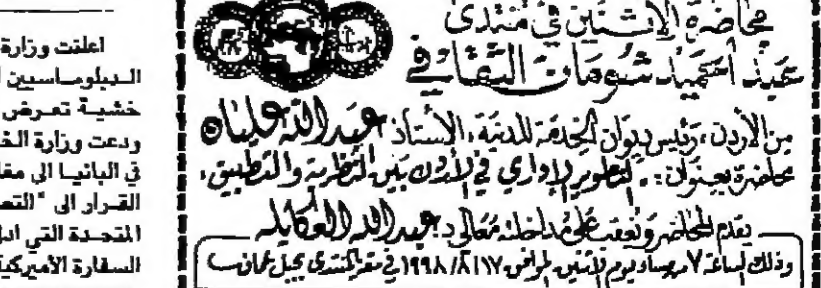 محاضرة الإثنين في منتدى
عبد الحميد شومان الثقافي
من الأردن، رئيس ديوان الخدمة المدنية، الأستاذ عبدالله عليان
محاضرة بعنوان: "التطوير الإداري في الأردن بين النظرية والتطبيق"
يقدم المحاضر ويعقب على مداخلته معالي د. عبدالله العكايله
وذلك الساعة ٧ مساء يوم الإثنين الموافق ١٩٩٨/٨/١٧ في مقر المنتدى بجبل عمان
اعلنت وزارة
الدبلوماسيين
خشية تعرض
ودعت وزارة الخ
في البانيا الى مغا
القرار الى "التع
المتحدة التي ادل
السفارة الأميركية